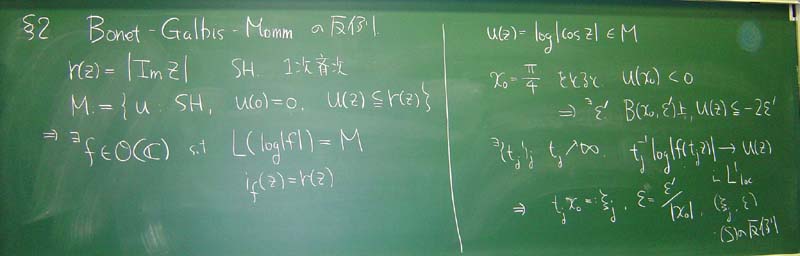 §2 Bonet-Galbis-Momm の反例
r(z) = |Im z| SH. 1次斉次
M = { u : SH, u(0)=0, u(z) ≦ r(z) }
⇒ ∃f ∈ O(ℂ) s.t. L(log|f|) = M
i_f(z) = r(z)
u(z) = log|cos z| ∈ M
x₀ = π/4 とすると u(x₀) < 0
⇒ ∃ε' B(x₀, ε')上, u(z) ≦ -2ε'
∃{t_j}_j t_j ↗ ∞. t_j⁻¹ log|f(t_j z)| → u(z)
in L¹loc
⇒ t_j x₀ =: ξ_j, ε = ε'/|x₀|, (ξ_j, ε)
(S)の反例